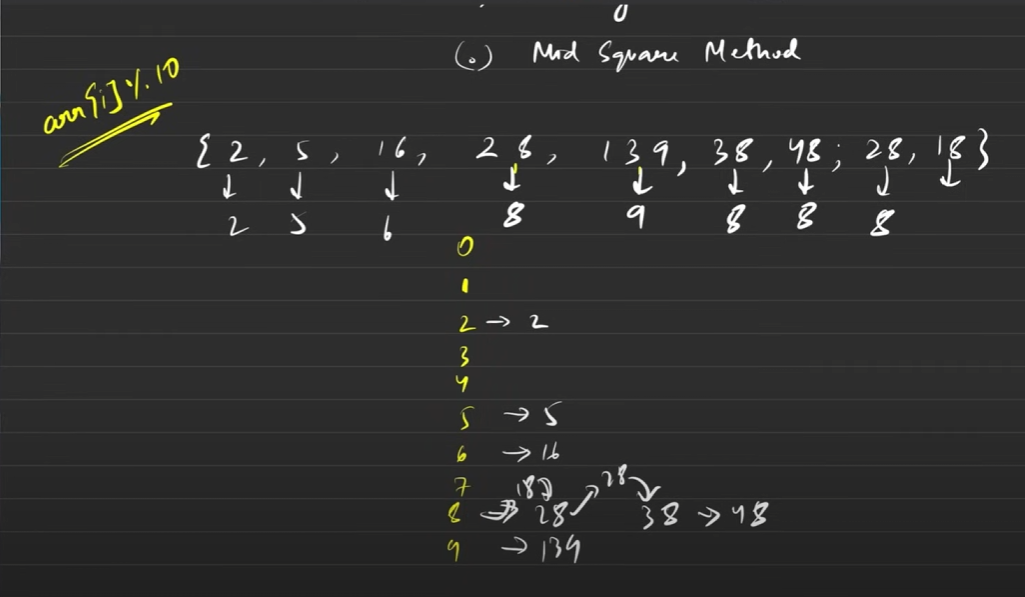 (.) Mod Square Method
arr[i] % 10
{ 2, 5, 16, 28, 139, 38, 48; 28, 18 }
↓ ↓ ↓ ↓ ↓ ↓ ↓ ↓ ↓
2 5 6 8 9 8 8 8
0
1
2 → 2
3
4
5 → 5
6 → 16
7
8 → 18 → 28 → 28 → 38 → 48
9 → 139